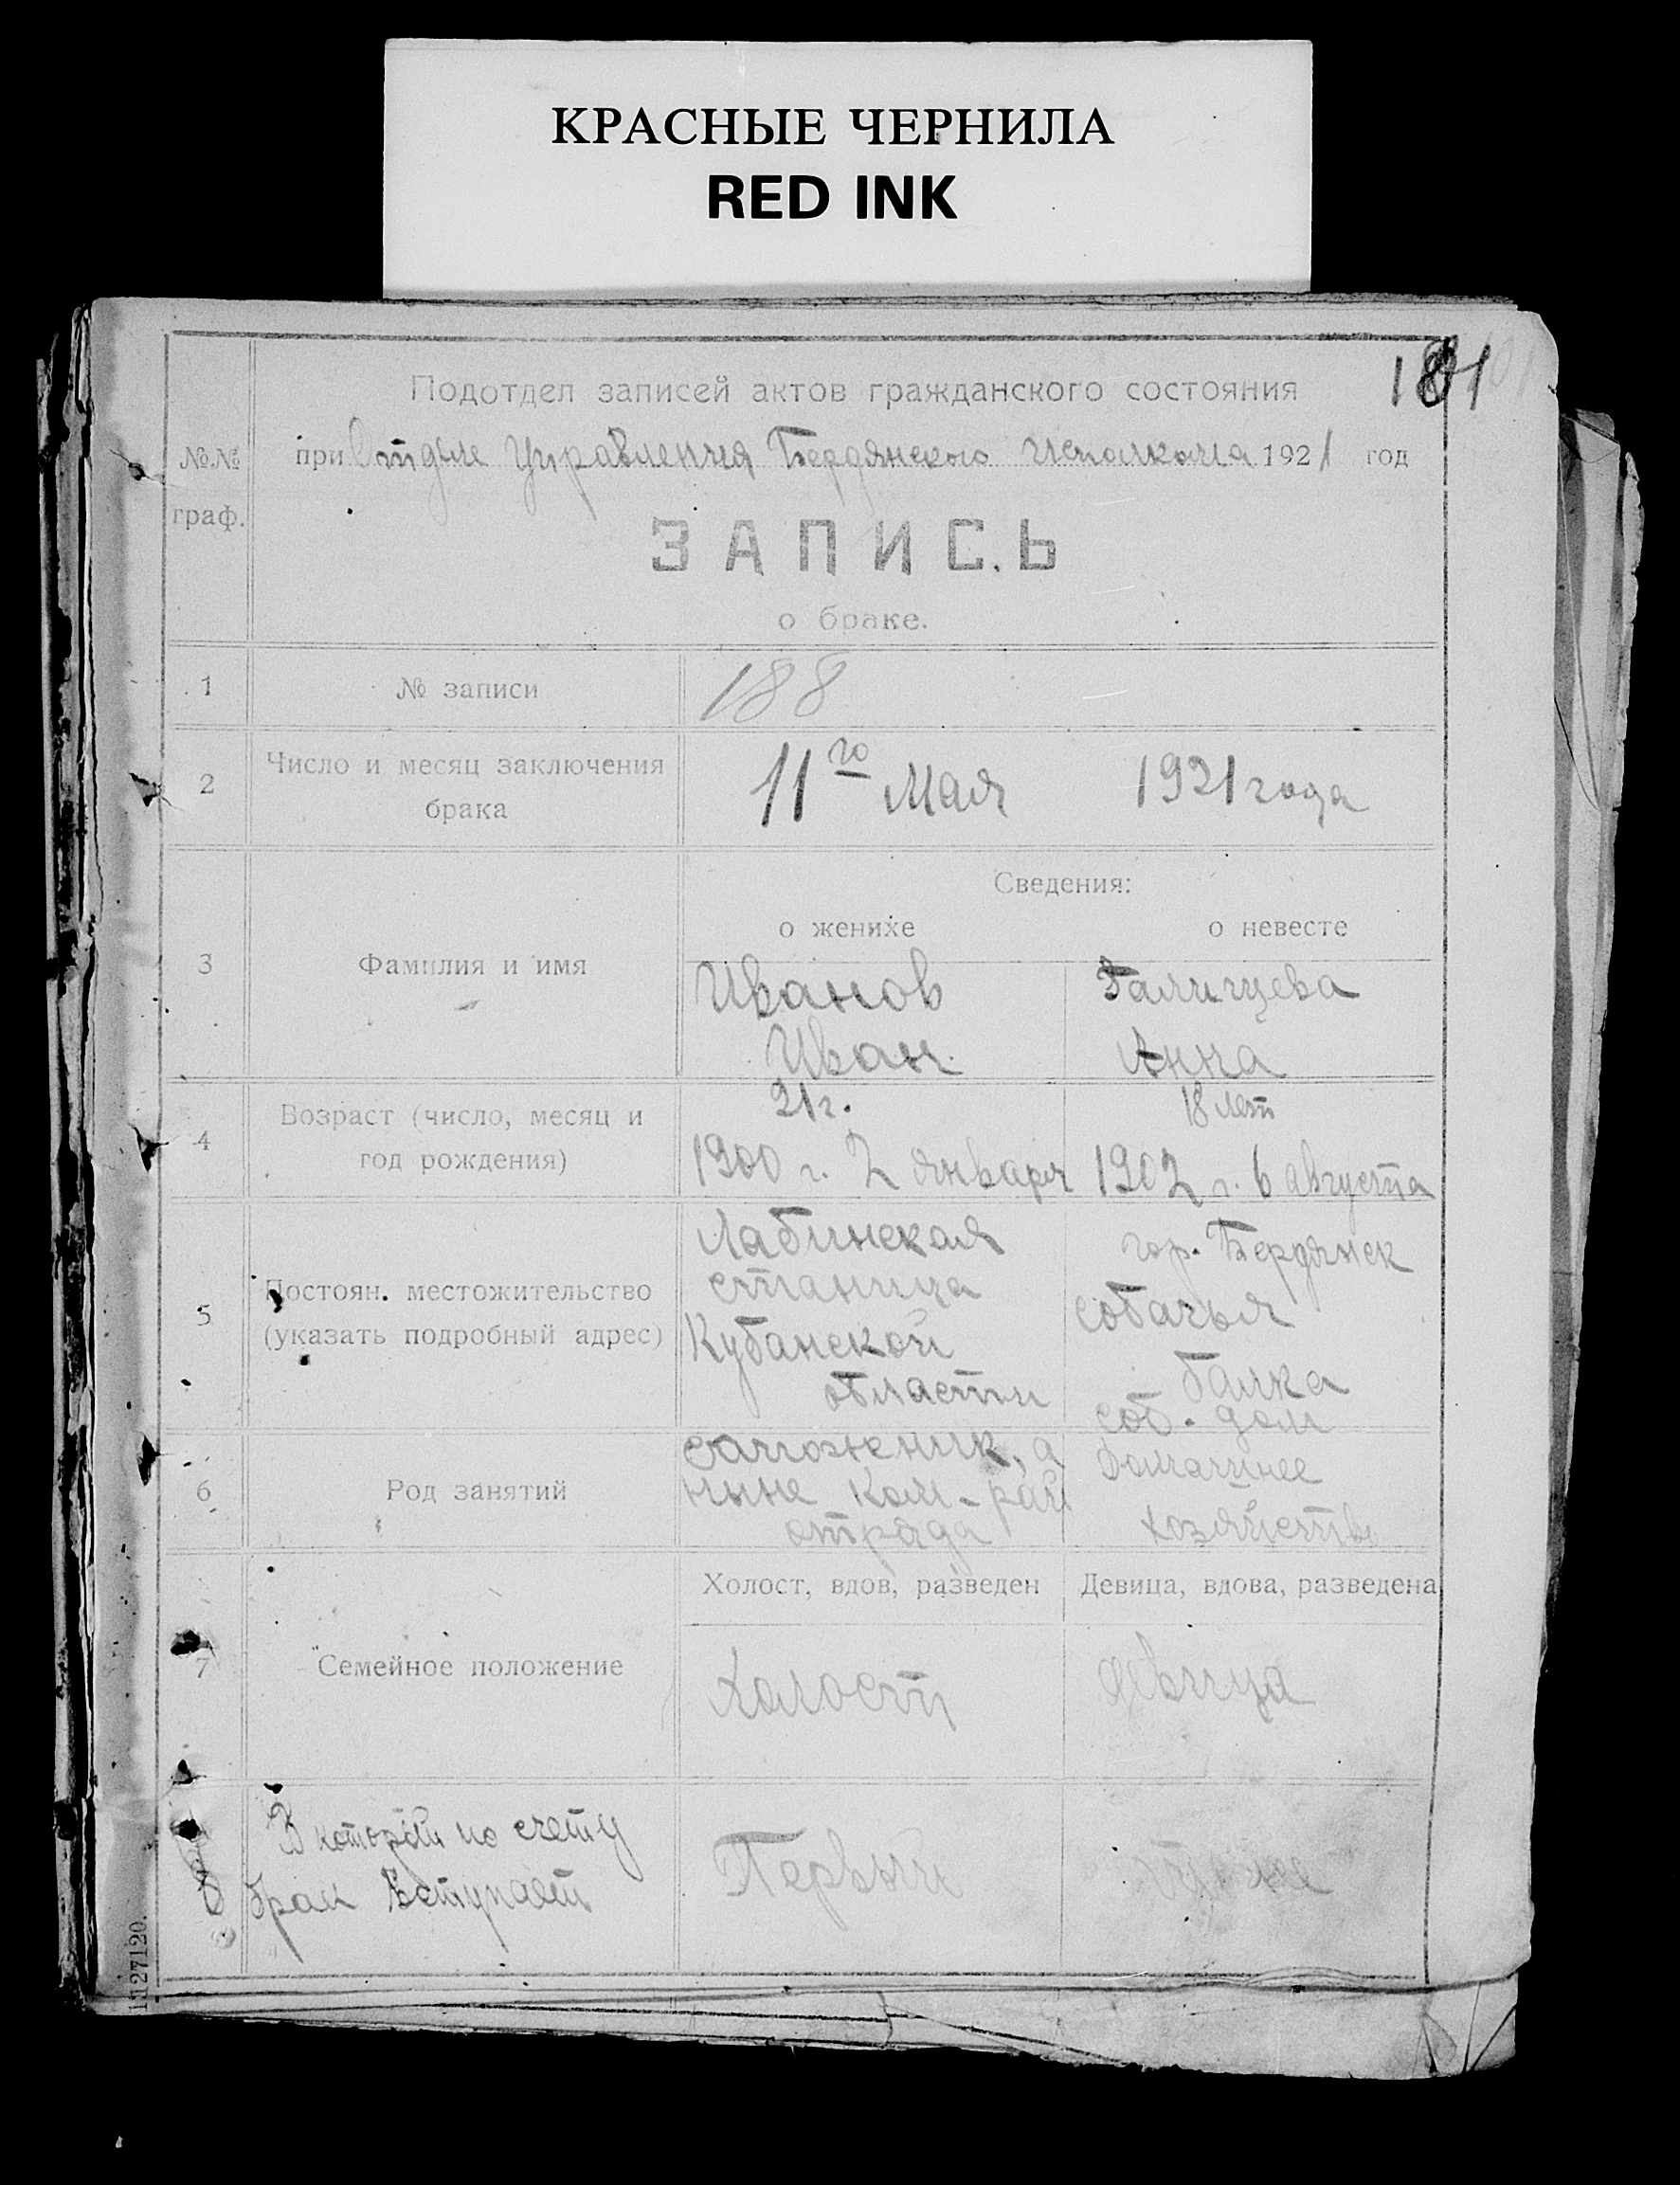 КРАСНЫЕ ЧЕРНИЛА
RED INK
Подотдел записей актов гражданского состояния
№.№
граф.
при Отделе Управления Бердянского Исполкома 1921 год
ЗАПИСЬ
о браке.
1
№ записи
188
2
Число и месяц заключения
брака
11го Мая 1921 года
Сведения:
о женихе
о невесте
3
Фамилия и имя
Иванов
Иван
Анна
4
Возраст (число, месяц и
год рождения)
21 г.
1900 г. 2 января
18 лет
1902 г. 6 августа
5
Постоян. местожительство
(указать подробный адрес)
Лабинская
станица
Кубанской
области
гор. Бердянск
собачья
балка
соб. дом
6
Род занятий
сапожник, а
ныне ком-рай
отряда
домашнее
хозяйство
Холост, вдов, разведен
Девица, вдова, разведена
7
Семейное положение
Холост
девица
8
В который по счету
брак вступает
Первый
1127120.